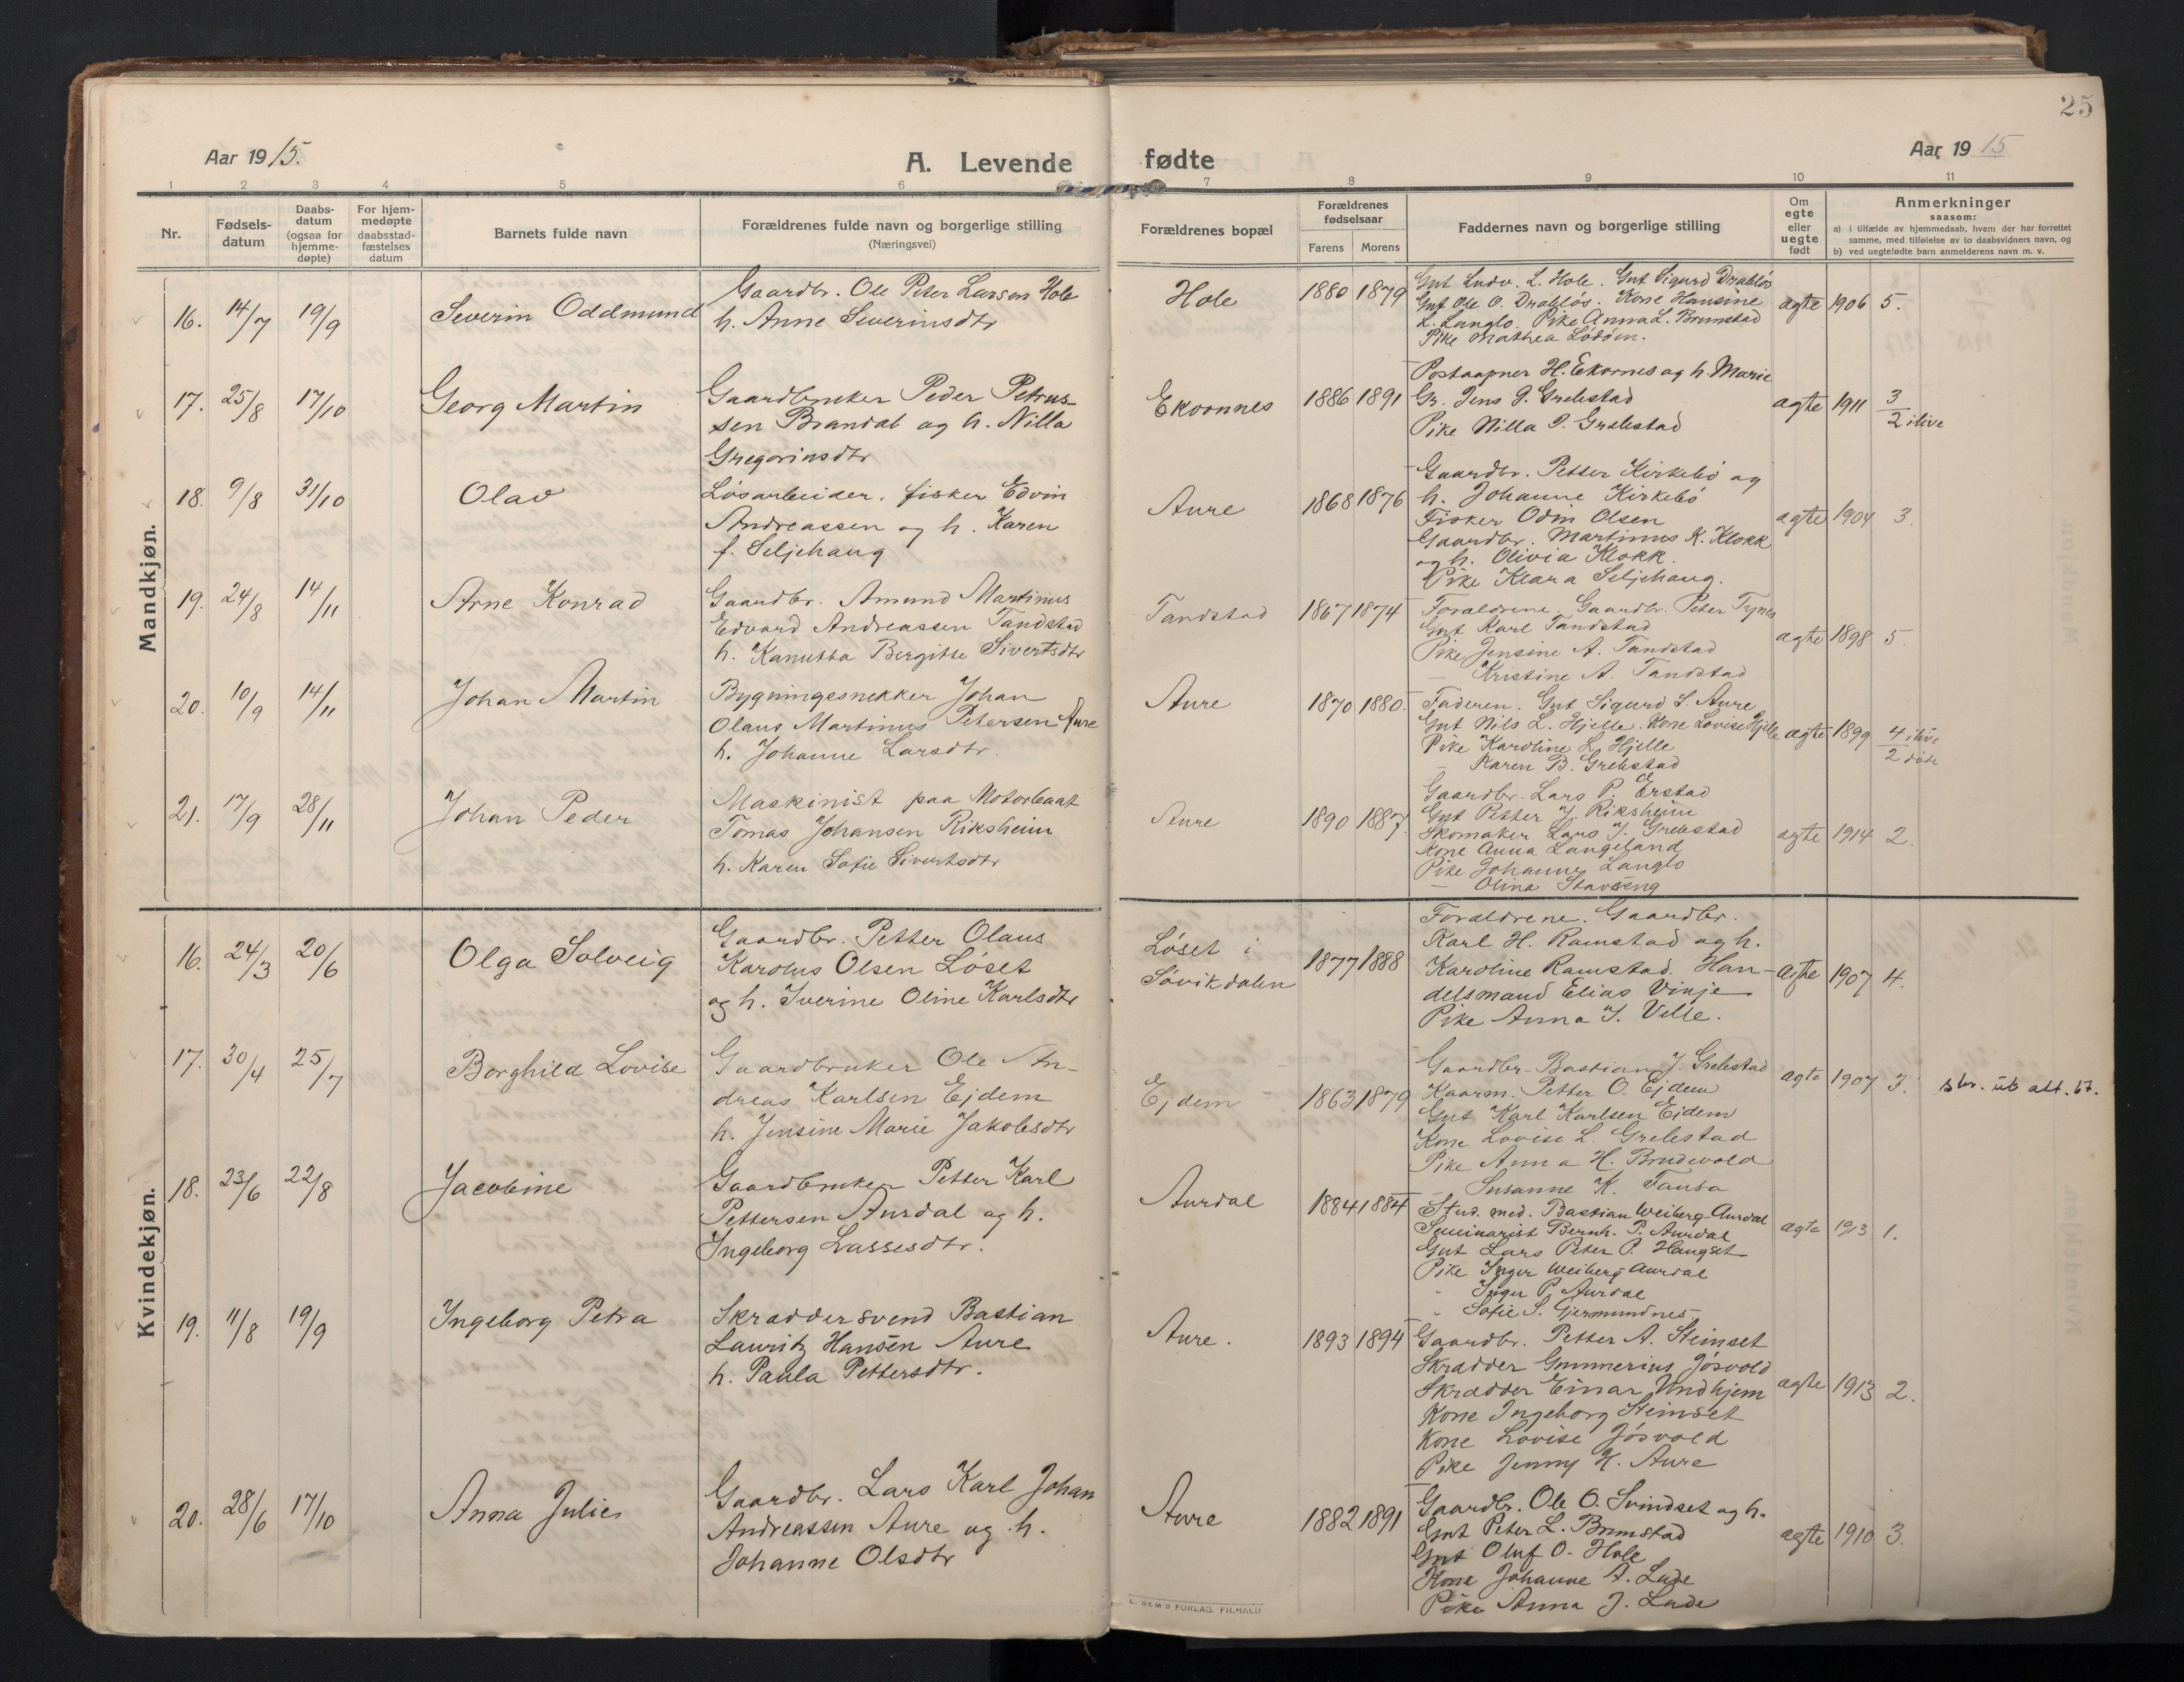 25
Aar 1915.
A. Levende fødte
Aar 1915
1 2 3 4 5 6 7 8 9 10 11
Nr.
Fødsels-
datum
Daabs-
datum
(ogsaa for
hjemme-
døpte)
For hjem-
medøpte
daabsstad-
fæstelses
datum
Barnets fulde navn
Forældrenes fulde navn og borgerlige stilling
(Næringsvei)
Forældrenes bopæl
Forældrenes
fødselsaar
Farens Morens
Faddernes navn og borgerlige stilling
Om
egte
eller
uegte
født
Anmerkninger
saasom:
a) i tilfælde av hjemmedaab, hvem der har forrettet
samme, med tilføielse av to daabsvidners navn, og
b) ved uegtefødte barn anmelderens navn m. v.
Mandkjøn.
16. 14/7 19/9 Severin Oddmund
Gaardbr. Ole Peter Larsen Hole
h. Anne Severinsdtr
Hole 1880 1879
Gut Ludv. L. Hole. Gut Sigurd Drabløs
Gut Ole O. Drabløs. Kone Hansine
L. Langlo. Pike Anna L. Brunstad
Pike Mathea Lødøen.
ægte 1906 5.
17. 25/8 17/10 Georg Martin
Gaardbruker Peder Petrus-
sen Brandal og h. Nilla
Gregoriusdtr
Ekornnes 1886 1891
Postaapner H. Ekornes og h. Marie
Gr. Jens J. Grebstad
Pike Nilla J. Grebstad
ægte 1911 3
2 ilive
18. 9/8 31/10 Olav
Løsarbeider, fisker Edvin
Andreassen og h. Karen
f. Seljehaug
Aure 1868 1876
Gaardbr. Petter Kirkebø og
h. Johanne Kirkebø
Fisker Odin Olsen
Gaardbr. Martinus K. Klokk
og h. Olivia Klokk.
Pike Klara Seljehaug.
ægte 1904 3.
19. 24/8 14/11 Arne Konrad
Gaardbr. Amund Martinus
Edvard Andreassen Tandstad
h. Kanutta Bergitte Sivertsdtr
Tandstad 1867 1874
Forældrene. Gaardbr. Peter Tynes
Gut Karl Tandstad
Pike Jensine A. Tandstad
— Kristine A. Tandstad
ægte 1898 5
20. 10/9 14/11 Johan Martin
Bygningssnekker Johan
Olaus Martinus Petersen Aure
h. Johanne Larsdtr.
Aure 1870 1880.
Faderen. Gut Sigurd S. Aure
Gut Nils L. Hjelle. Kone Lovise Hjelle
Pike Karoline L. Hjelle
— Karen B. Grebstad
ægte 1899 4 ilive
2 døde
21. 17/9 28/11 Johan Peder
Maskinist paa Motorbaat
Tomas Johansen Riksheim
h. Karen Sofie Sivertsdtr
Aure 1890 1887.
Gaardbr. Lars P. Erstad
Gut Petter J. Riksheim
Skomaker Lars J. Grebstad
Kone Anna Langeland
Pike Johanne Langlo
— Olina Stavseng
ægte 1914 2.
Kvindekjøn.
16. 24/3 20/6 Olga Solveig
Gaardbr. Petter Olaus
Karolus Olsen Løset
og h. Iverine Oline Karlsdtr
Løset i
Søvikdalen
1877 1888
Forældrene. Gaardbr.
Karl H. Ramstad og h.
Karoline Ramstad. Han-
delsmand Elias Vinje
Pike Anna J. Velle.
ægte 1907 4.
17. 30/4 25/7 Borghild Lovise
Gaardbruker Ole An-
dreas Karlsen Ejdem
h. Jensine Marie Jakobsdtr
Ejdem 1863 1879
Gaardbr. Bastian J. Grebstad
Kaarm. Petter O. Ejdem
Gut Karl Karlsen Eidem
Kone Lovise L. Grebstad
Pike Anna H. Brudevold
— Susanne K. Tausa
ægte 1907 3. skr. ut att. 57.
18. 23/6 22/8 Jacobine
Gaardbruker Petter Karl
Pettersen Aurdal og h.
Ingeborg Lassesdtr.
Aurdal 1884 1884
Stud. med. Bastian Weiberg-Aurdal
Seminarist Bernh. P. Aurdal
Gut Lars Peter P. Haugset
Pike Inger Weiberg-Aurdal
" Inger P. Aurdal
" Sofie S. Gjermundnes.
ægte 1913 1.
19. 11/8 19/9 Ingeborg Petra
Skræddersvend Bastian
Lauritz Hansen Aure
h. Paula Pettersdtr.
Aure. 1893 1894
Gaardbr. Petter A. Steimset
Skrædder Gunnerius Jøsvold
Skrædder Einar Undhjem
Kone Ingeborg Steimset
Kone Lovise Jøsvold
Pike Jenny H. Aure
ægte 1913 2.
20. 28/6 17/10 Anna Julie
Gaardbr. Lars Karl Johan
Andreassen Aure og h.
Johanne Olsdtr
Aure 1882 1891
Gaardbr. Ole O. Svindset og h.
Gut Peter L. Brunstad
Gut Oluf O. Hole
Kone Johanne A. Lade
Pike Anna J. Lade
ægte 1910 3.
E. SEM'S FORLAG. FR.HALD